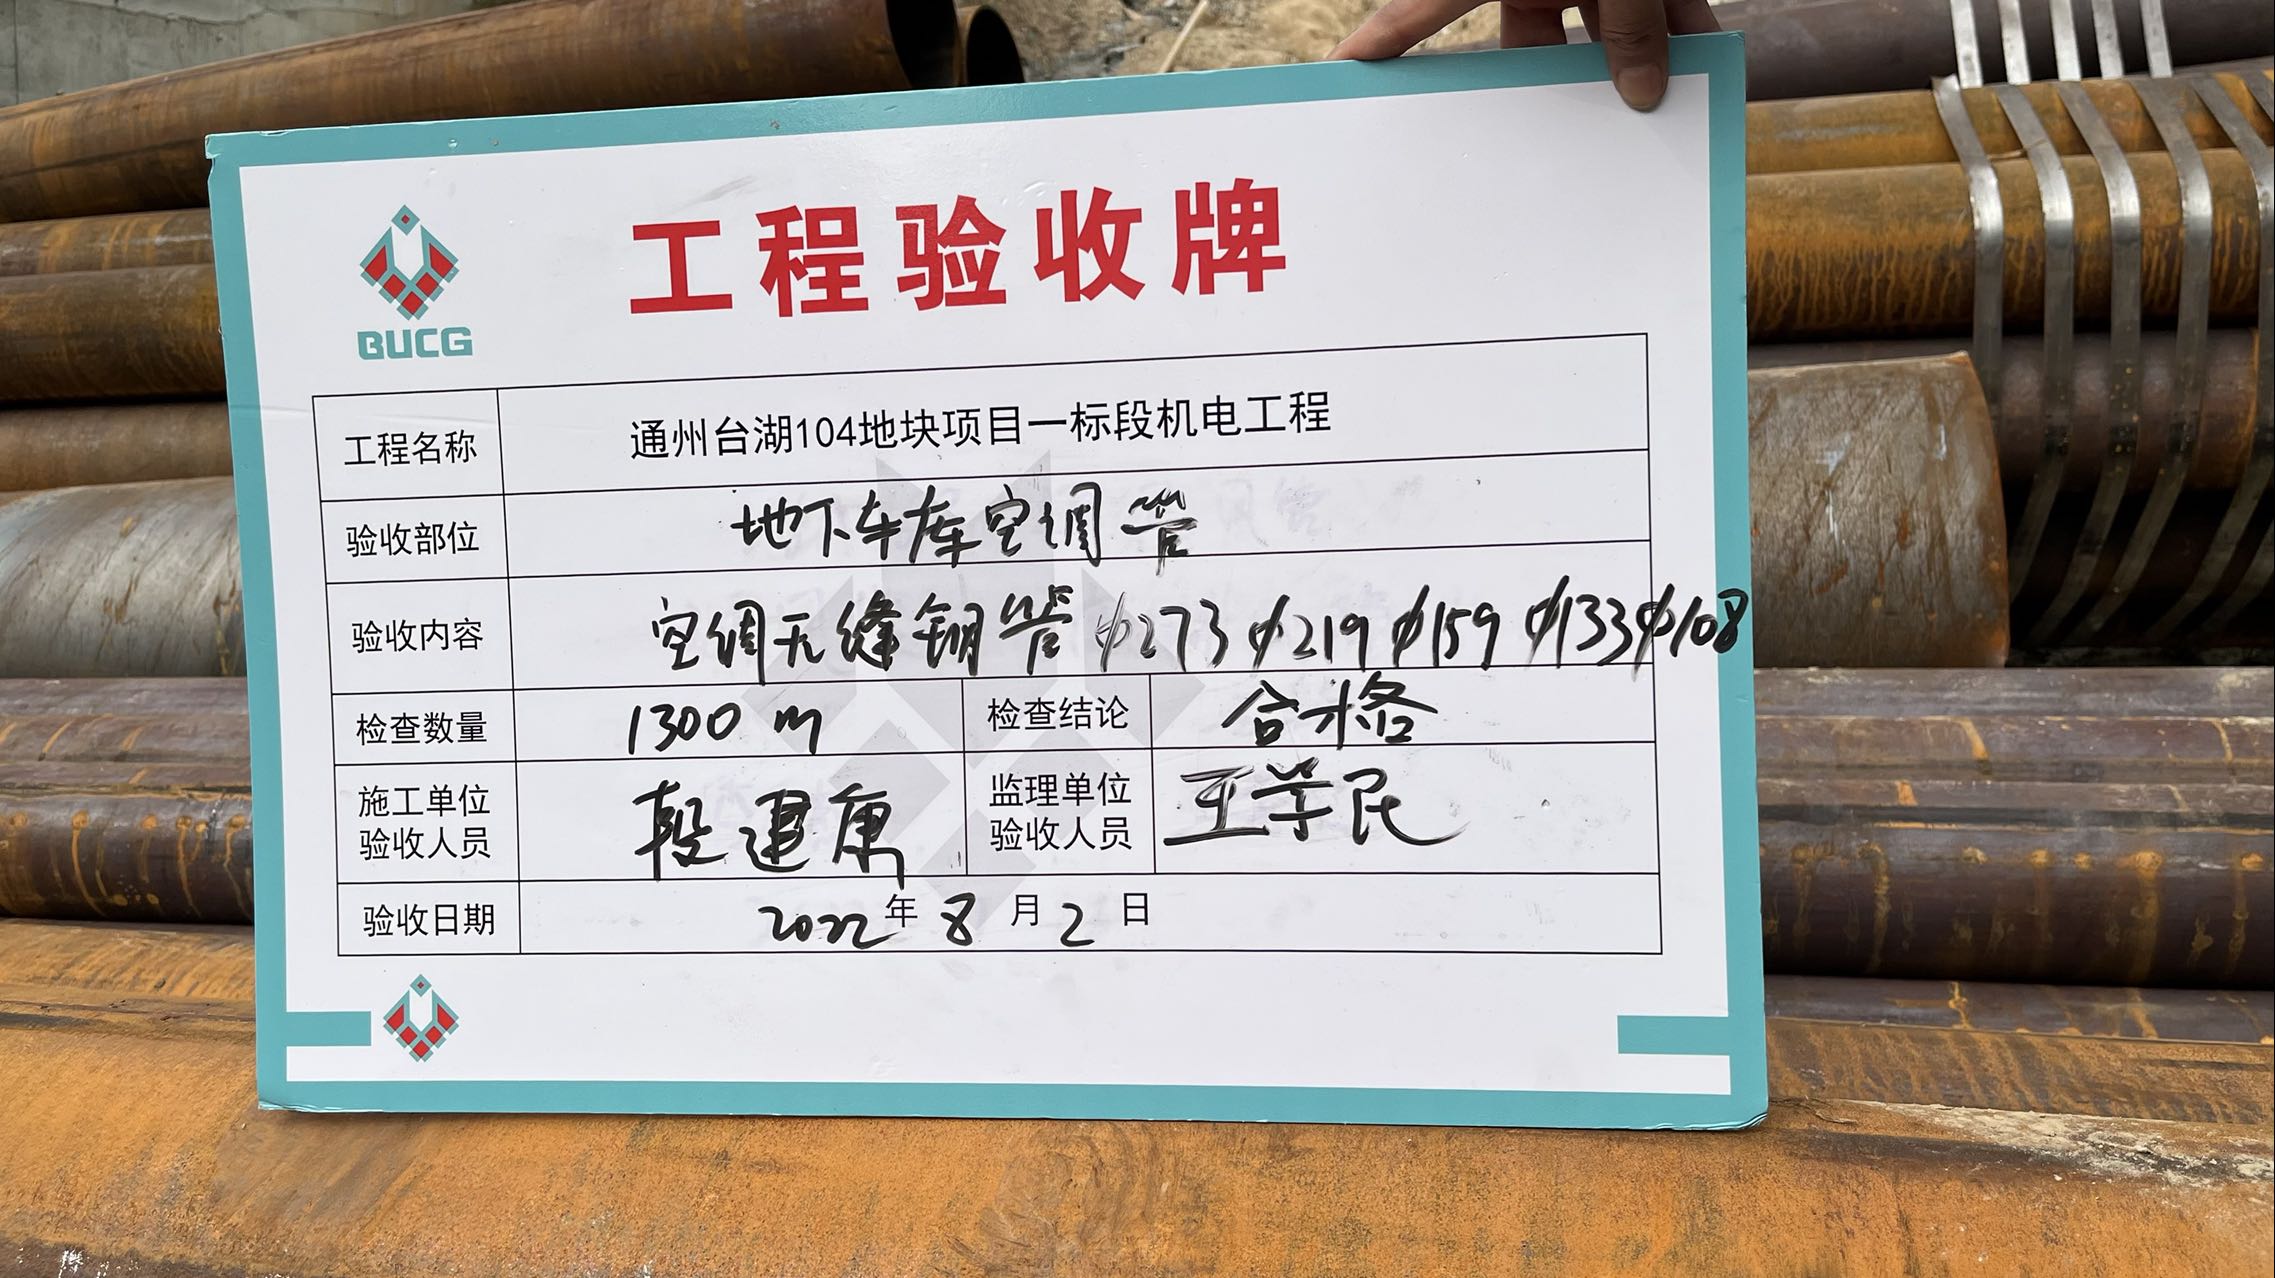 BUCG
工程验收牌
工程名称 通州台湖104地块项目一标段机电工程
验收部位 地下车库空调管
验收内容 空调无缝钢管 φ273 φ219 φ159 φ133 φ108
检查数量 1300 m 检查结论 合格
施工单位 监理单位
验收人员 段建康 验收人员 王学民
验收日期 2022年8月2日